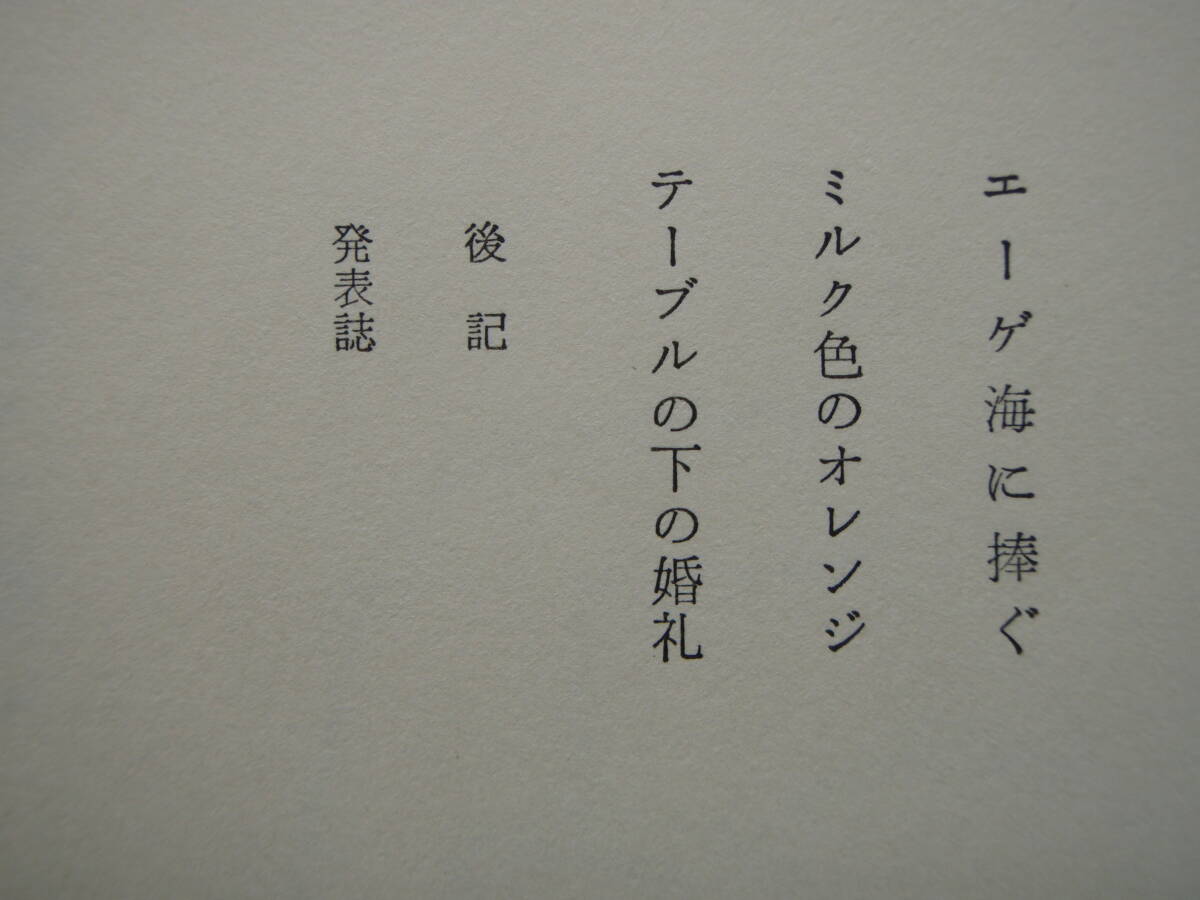 エーゲ海に捧ぐ
ミルク色のオレンジ
テーブルの下の婚礼
後記
発表誌